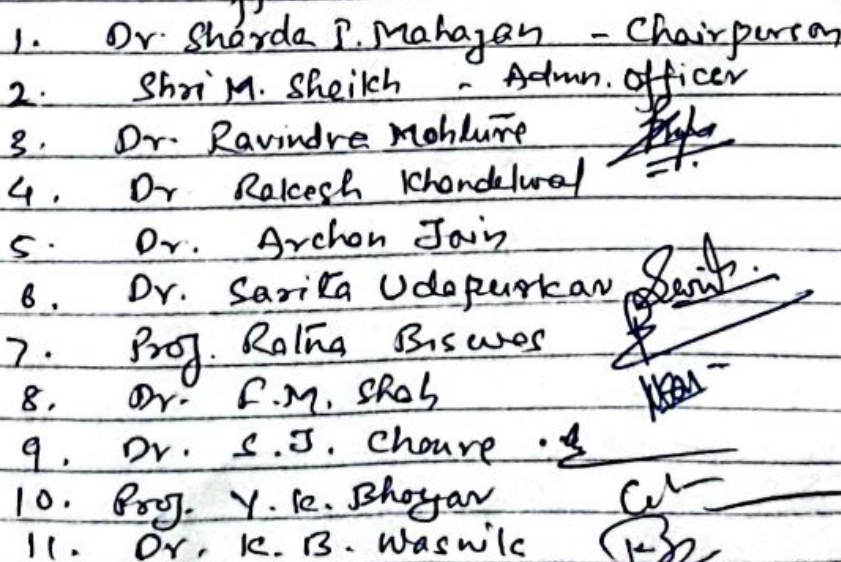 1. Dr. Sharda P. Mahajan - Chairperson
2. Shri M. Sheikh - Admn. Officer
3. Dr. Ravindra Mohture
4. Dr Rakesh Khandelwal
5. Dr. Archan Jain
6. Dr. Sarita Udapurkar
7. Prof. Ratna Biswas
8. Dr. F.M. Shah
9. Dr. S.J. Choure
10. Prof. Y.K. Bhoyar
11. Dr. K.B. Wasnik